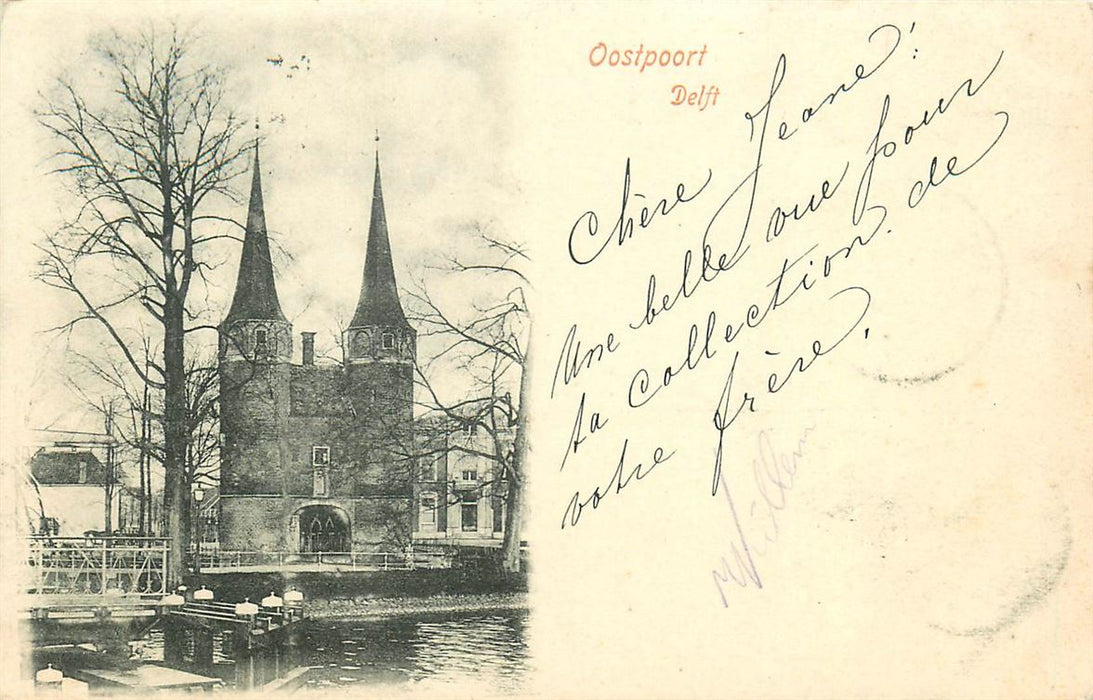 Oostpoort
Delft
Chère Jeane!
Une belle vue pour
ta collection. de
votre frère.
Willem